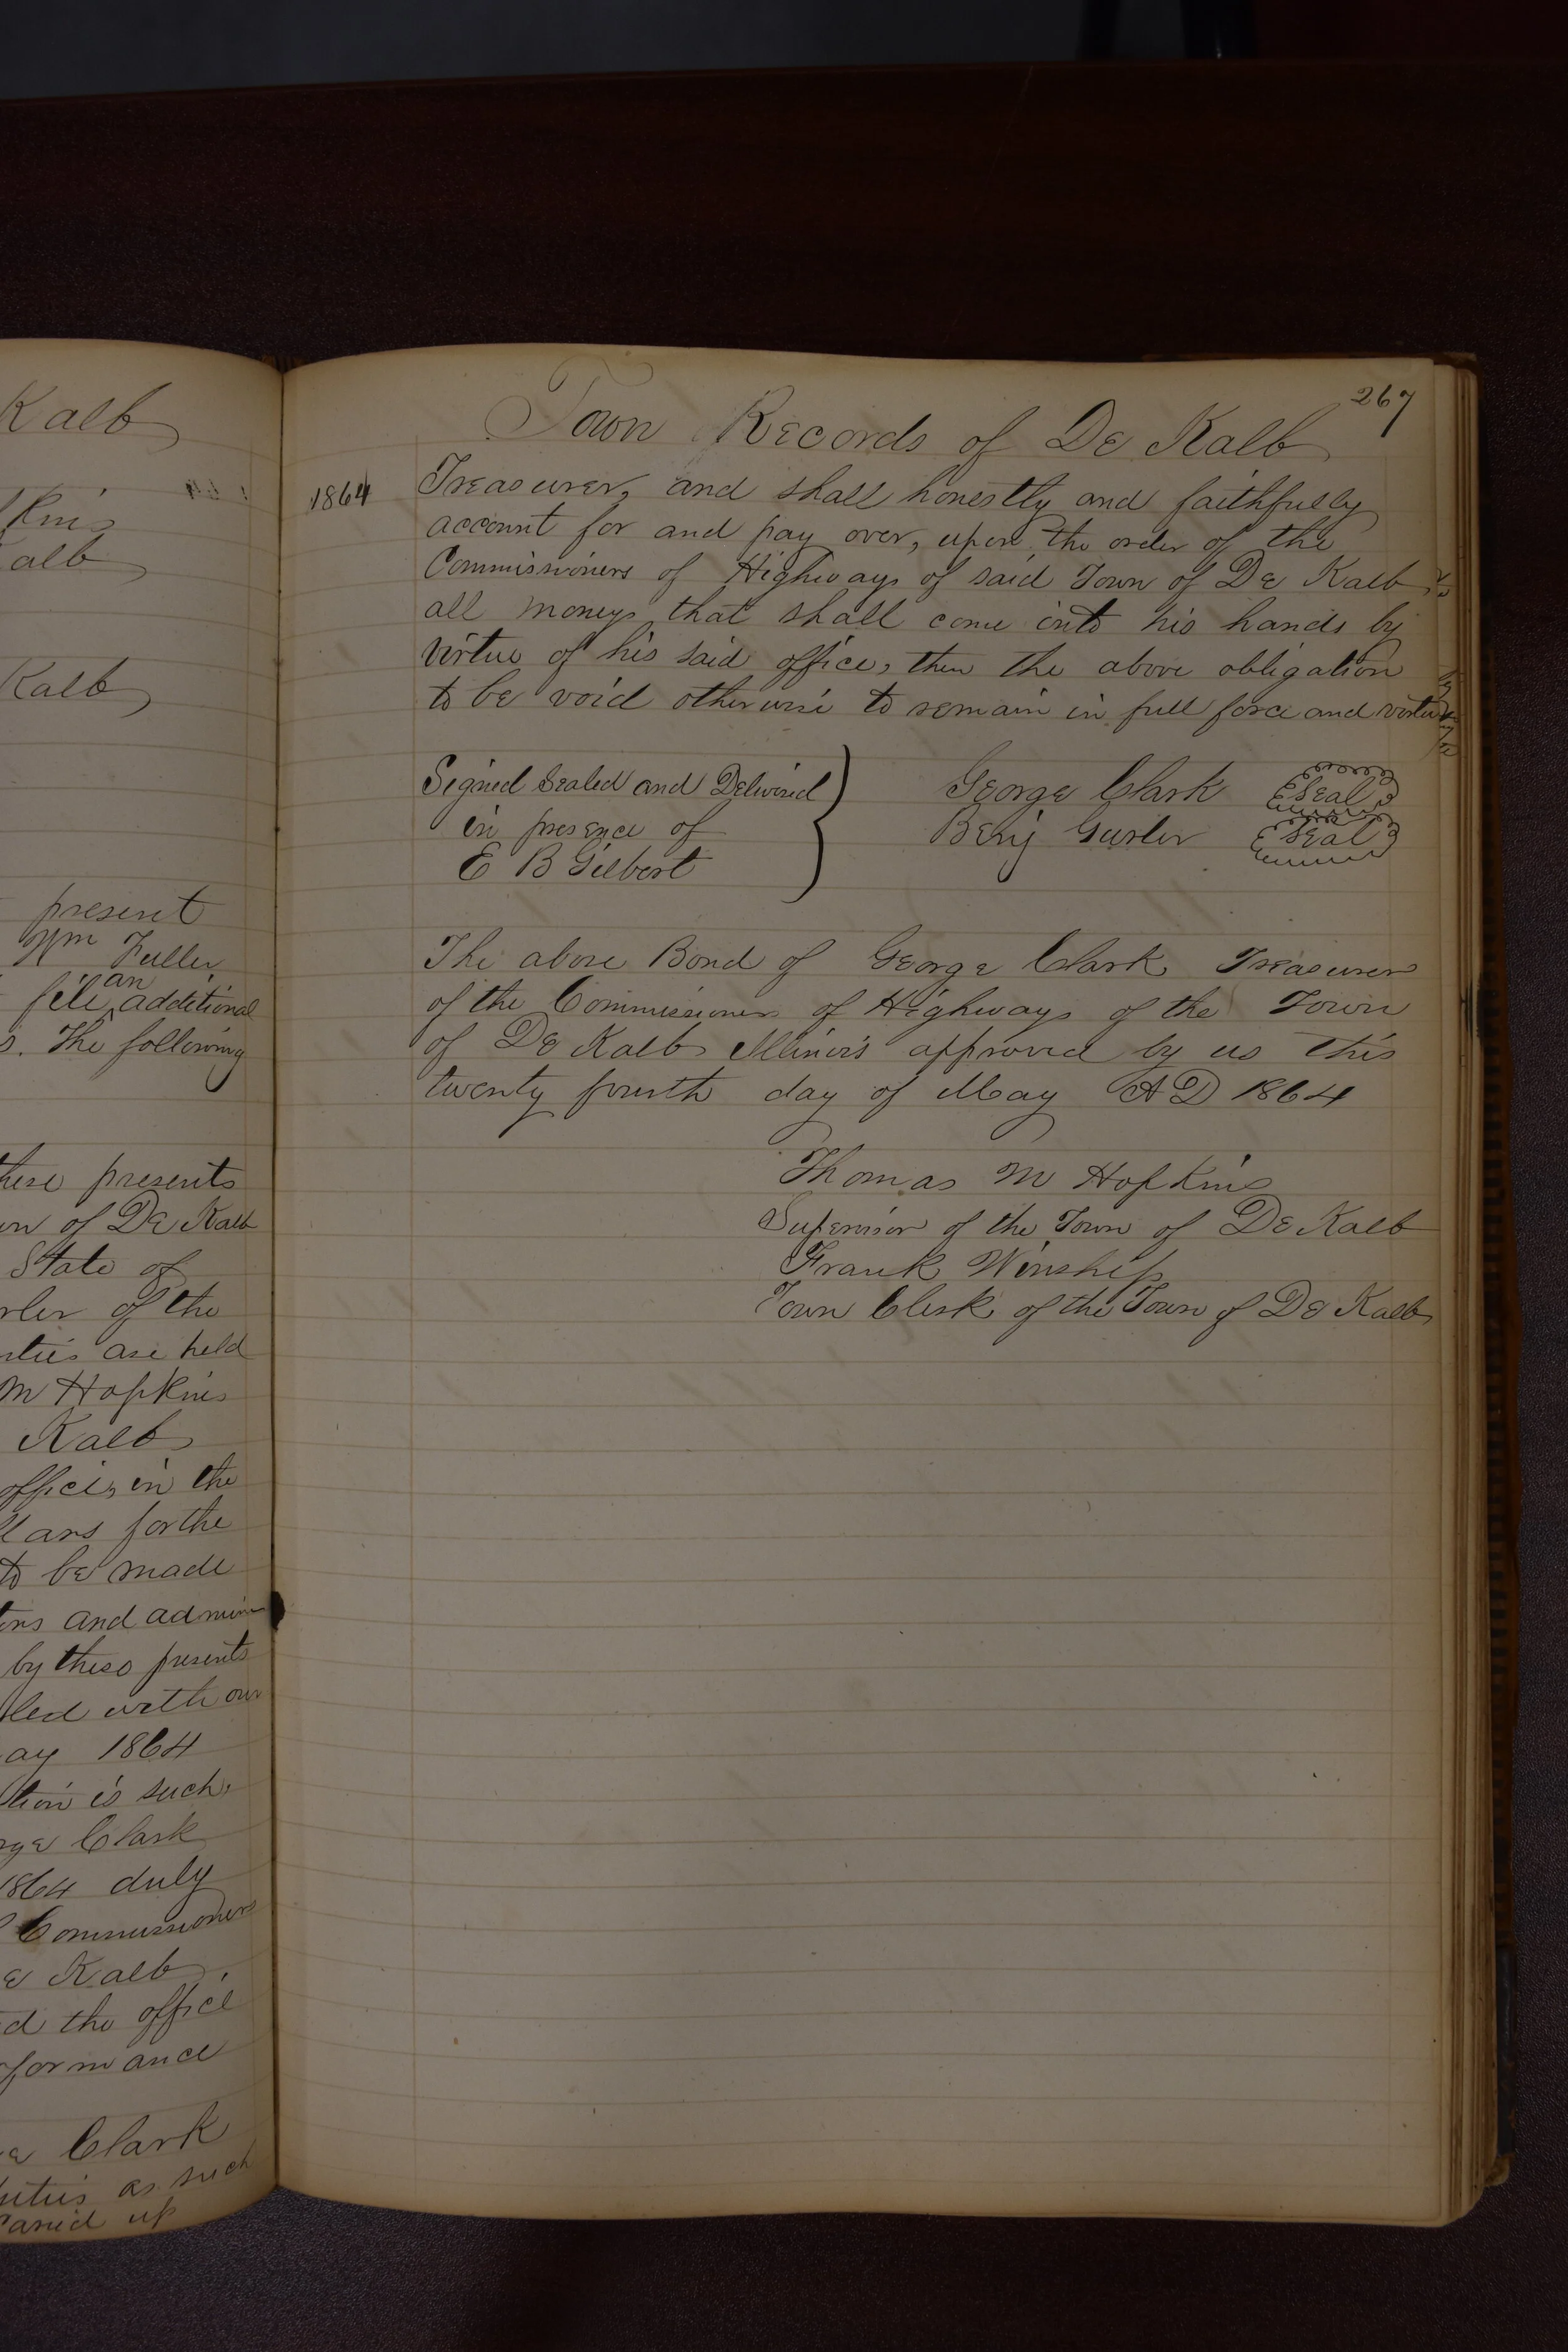 Kalb
kins
alb
Kalb
present
Wm Fuller
file an additional
s. The following
these presents
wn of De Kalb
State of
rler of the
rties are held
M Hopkins
Kalb
office, in the
llars for the
to be made
tors and admin
by these presents
led with our
ay 1864
tion is such,
rge Clark
1864 duly
Commissioners
e Kalb,
d the office
formance
e Clark
uties as such
Caried up
267
Town Records of De Kalb
1864
Treasurer, and shall honestly and faithfully
account for and pay over, upon the order of the
Commissioners of Highways of said Town of De Kalb
all moneys that shall come into his hands by
virtue of his said office, then the above obligation
to be void otherwise to remain in full force and virtue
Signed Sealed and Delivered
in presence of
E B Gilbert
George Clark Seal
Benj Gurler Seal
The above Bond of George Clark Treasurer
of the Commissioners of Highways of the Town
of De Kalb Illinois approved by us this
twenty fourth day of May A D 1864
Thomas M Hopkins
Supervisor of the Town of De Kalb
Frank Winship
Town Clerk of the Town of De Kalb